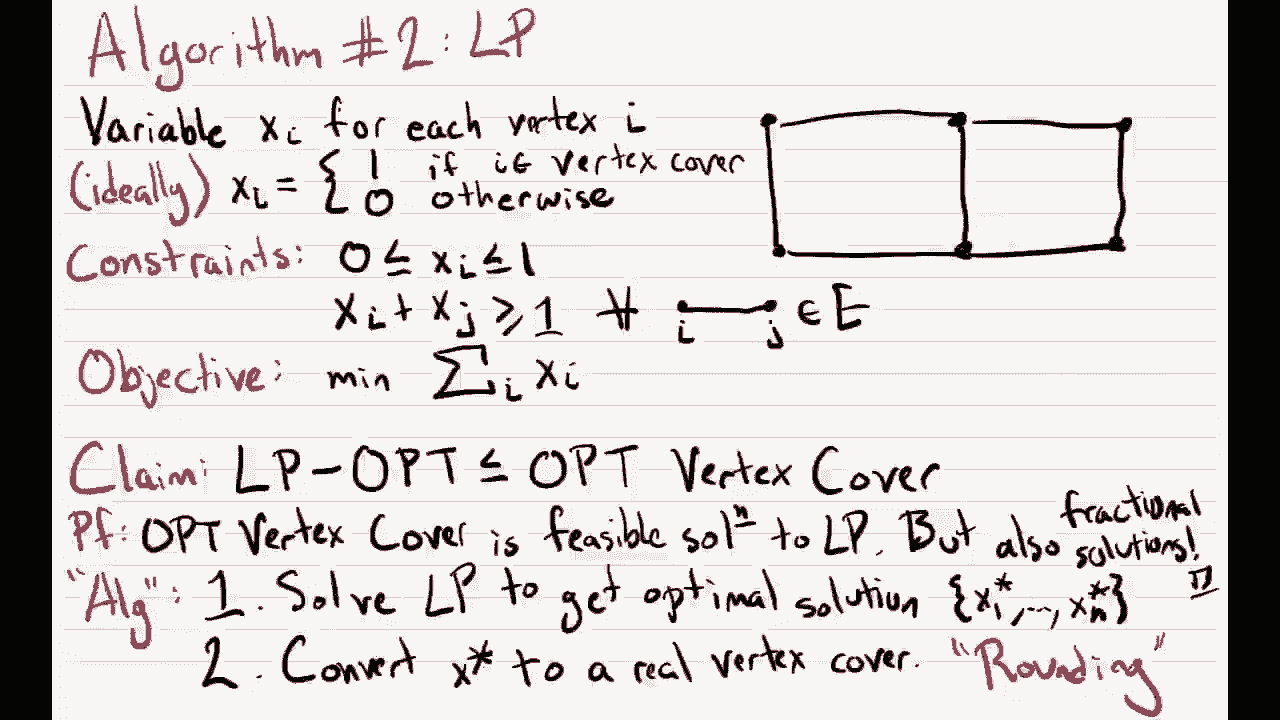 Algorithm #2: LP
Variable xᵢ for each vertex i
(ideally) xᵢ = { 1 if i ∈ vertex cover
0 otherwise
Constraints: 0 ≤ xᵢ ≤ 1
xᵢ + xⱼ ≥ 1 ∀ i—j ∈ E
Objective: min ∑ᵢ xᵢ
Claim: LP-OPT ≤ OPT Vertex Cover
Pf: OPT Vertex Cover is feasible solⁿ to LP. But also fractional solutions! □
"Alg": 1. Solve LP to get optimal solution {x₁*, ..., xₙ*}
2. Convert x* to a real vertex cover. "Rounding"